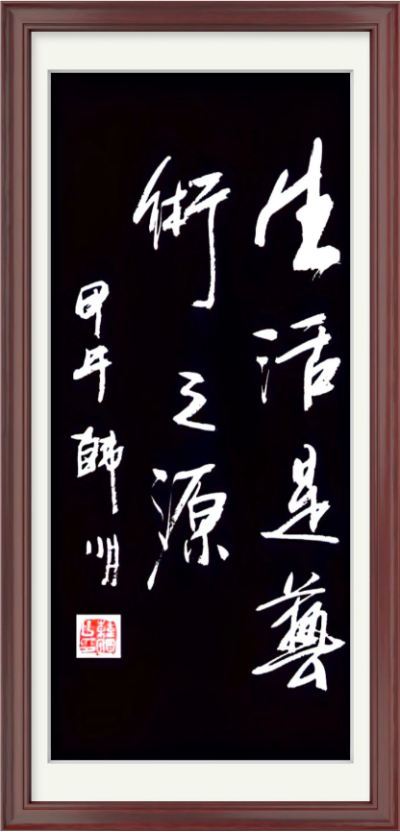 生活是藝
術之源
甲午 韓